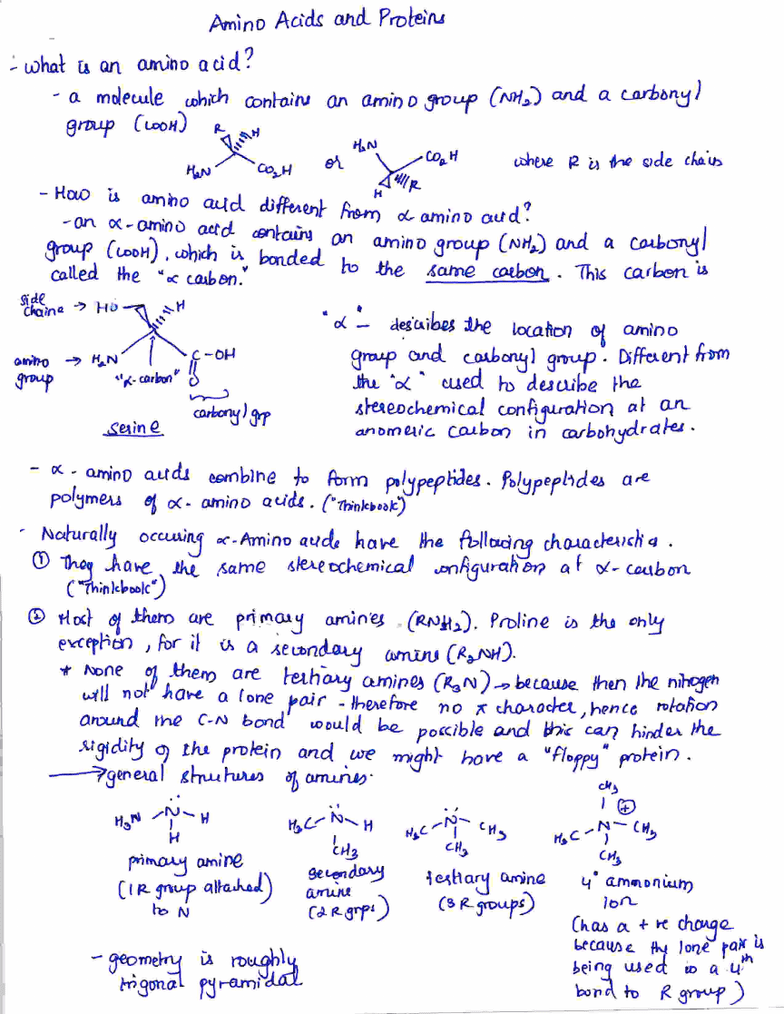 Amino Acids and Proteins
- What is an amino acid?
- a molecule which contains an amino group (NH2) and a carbonyl
group (COOH)
R H
H2N CO2H or H2N CO2H H R where R is the side chain
- How is amino acid different from α-amino acid?
- an α-amino acid contains an amino group (NH2) and a carbonyl
group (COOH), which is bonded to the same carbon. This carbon is
called the "α carbon."
side
chaine → HO H
amino → H2N "α-carbon" C-OH
group O
carbonyl grp
serine
"α" - describes the location of amino
group and carbonyl group. Different from
the "α" used to describe the
stereochemical configuration at an
anomeric carbon in carbohydrates.
- α-amino acids combine to form polypeptides. Polypeptides are
polymers of α-amino acids. ("Thinkbook")
- Naturally occuring α-Amino acids have the following characteristics.
① They have the same stereochemical configuration at α-carbon
("Thinkbook")
② Most of them are primary amines (RNH2). Proline is the only
exception, for it is a secondary amine (R2NH).
* None of them are tertiary amines (R3N) → because then the nitrogen
will not have a lone pair - therefore no π character, hence rotation
around the C-N bond would be possible and this can hinder the
rigidity of the protein and we might have a "floppy" protein.
→ general structures of amines.
H3N - N - H
H
primary amine
(1 R group attached)
to N
H3C - N - H
CH3
secondary
amine
(2 R grps)
H3C - N - CH3
CH3
tertiary amine
(3 R groups)
CH3
H3C - N - CH3 ⊕
CH3
4° ammonium
ion
(has a +ve charge
because the lone pair is
being used in a 4th
bond to R group)
- geometry is roughly
trigonal pyramidal